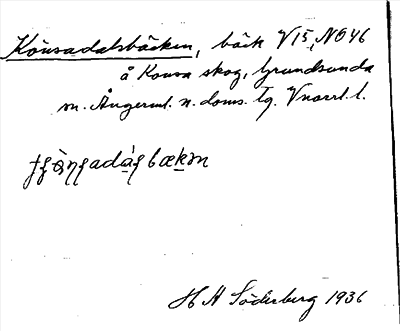 Könsadalsbäcken, bäck V15, NO46
å Konsa skog, Grundsunda
sn. Ångerml. n. doms. tg. Vnorrl. l.
H A Söderberg 1936